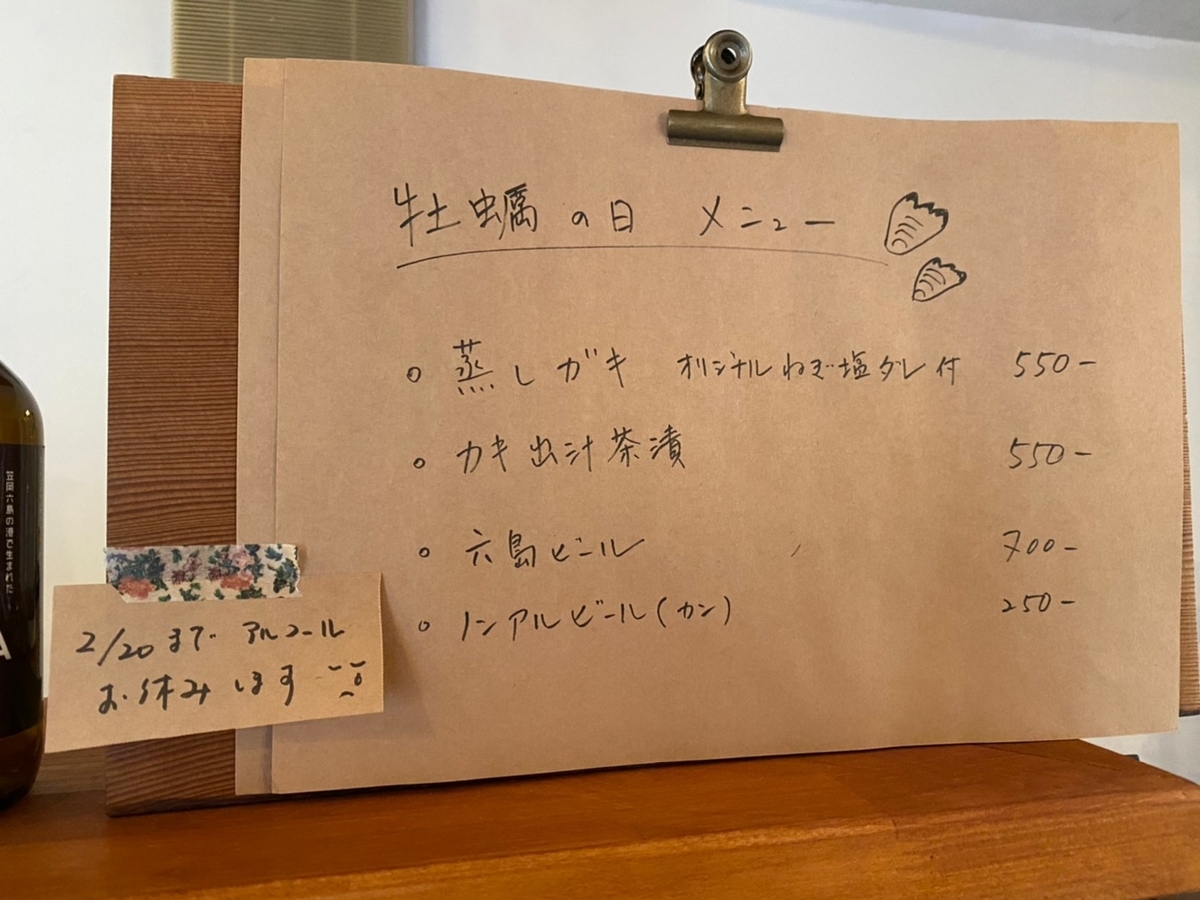 牡蠣の日 メニュー
○ 蒸しガキ オリジナルねぎ塩ダレ付 550-
○ カキ出汁茶漬 550-
○ 六島ビール 700-
○ ノンアルビール(カン) 250-
2/20まで アルコール
お休みします
笠岡六島の港で生まれた
A